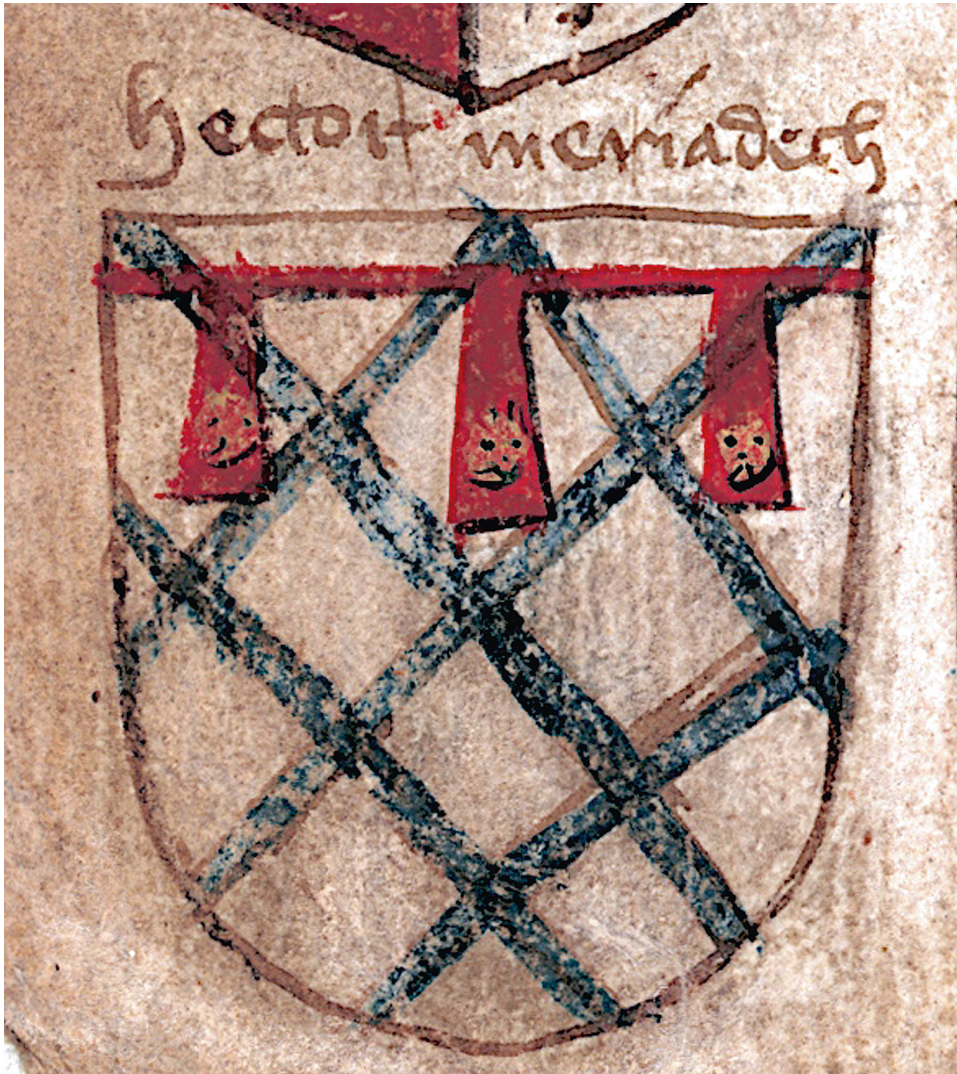 hector meriadech